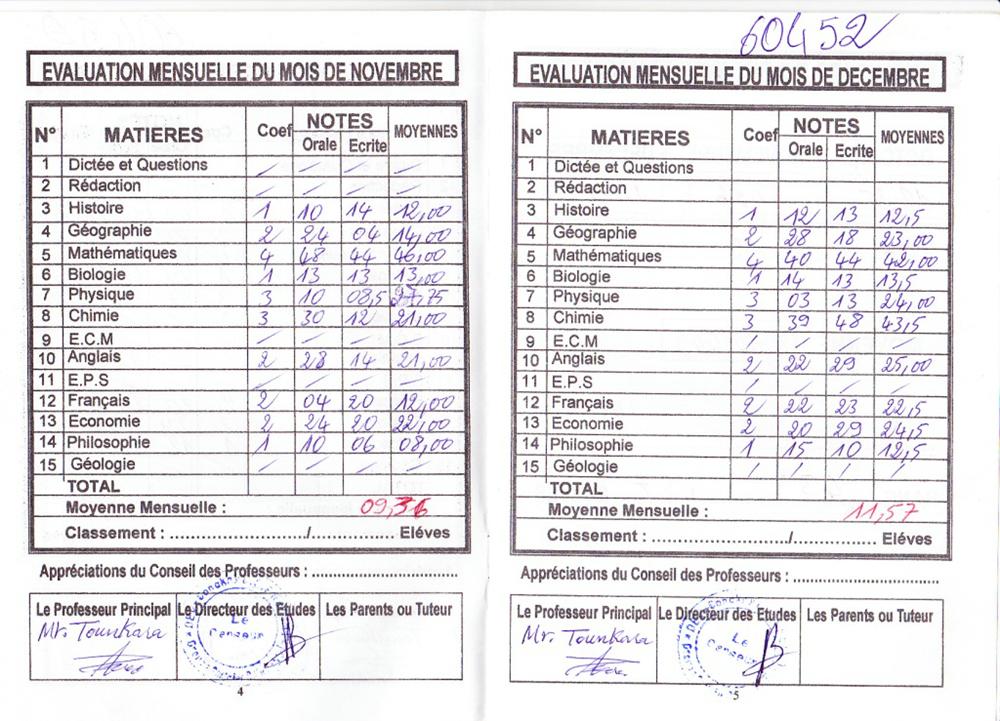 60452
EVALUATION MENSUELLE DU MOIS DE NOVEMBRE
N° MATIERES Coef NOTES Orale Ecrite MOYENNES
1 Dictée et Questions / / / /
2 Rédaction / / / /
3 Histoire 1 10 14 12,00
4 Géographie 2 24 04 14,00
5 Mathématiques 4 48 44 46,00
6 Biologie 1 13 13 13,00
7 Physique 3 10 08,5 27,75
8 Chimie 3 30 12 21,00
9 E.C.M / / / /
10 Anglais 2 28 14 21,00
11 E.P.S / / / /
12 Français 2 04 20 12,00
13 Economie 2 24 20 22,00
14 Philosophie 1 10 06 08,00
15 Géologie / / / /
TOTAL
Moyenne Mensuelle : 09,36
Classement : ......................../............... Eléves
Appréciations du Conseil des Professeurs : ..........................
Le Professeur Principal Le Directeur des Etudes Les Parents ou Tuteur
Mr. Tounkara Le
Censeur
4
EVALUATION MENSUELLE DU MOIS DE DECEMBRE
N° MATIERES Coef NOTES Orale Ecrite MOYENNES
1 Dictée et Questions
2 Rédaction
3 Histoire 1 12 13 12,5
4 Géographie 2 28 18 23,00
5 Mathématiques 4 40 44 42,00
6 Biologie 1 14 13 13,5
7 Physique 3 03 13 24,00
8 Chimie 3 39 48 43,5
9 E.C.M / / / /
10 Anglais 2 22 29 25,00
11 E.P.S / / / /
12 Français 2 22 23 22,5
13 Economie 2 20 29 24,5
14 Philosophie 1 15 10 12,5
15 Géologie / / / /
TOTAL
Moyenne Mensuelle : 11,57
Classement : ......................../............... Eléves
Appréciations du Conseil des Professeurs : ..........................
Le Professeur Principal Le Directeur des Etudes Les Parents ou Tuteur
Mr. Tounkara Le
Censeur
5